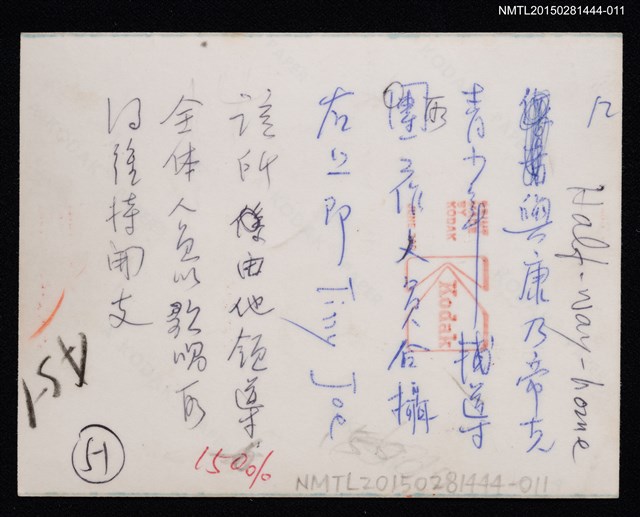 NMTL20150281444-011
Half-way-home
與康乃帝克
青少年輔導
所工作人員合攝
右立即 Tiny Joe
該所係由他領導
全体人員以歌唱所
得維持開支
150%
A51
51
Kodak
NMTL20150281444-011